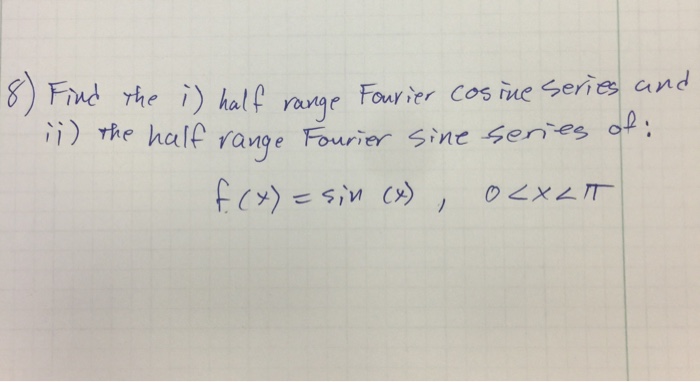 8) Find the i) half range Fourier cosine series and
ii) the half range Fourier sine series of:
f(x) = sin (x) , 0<x<π